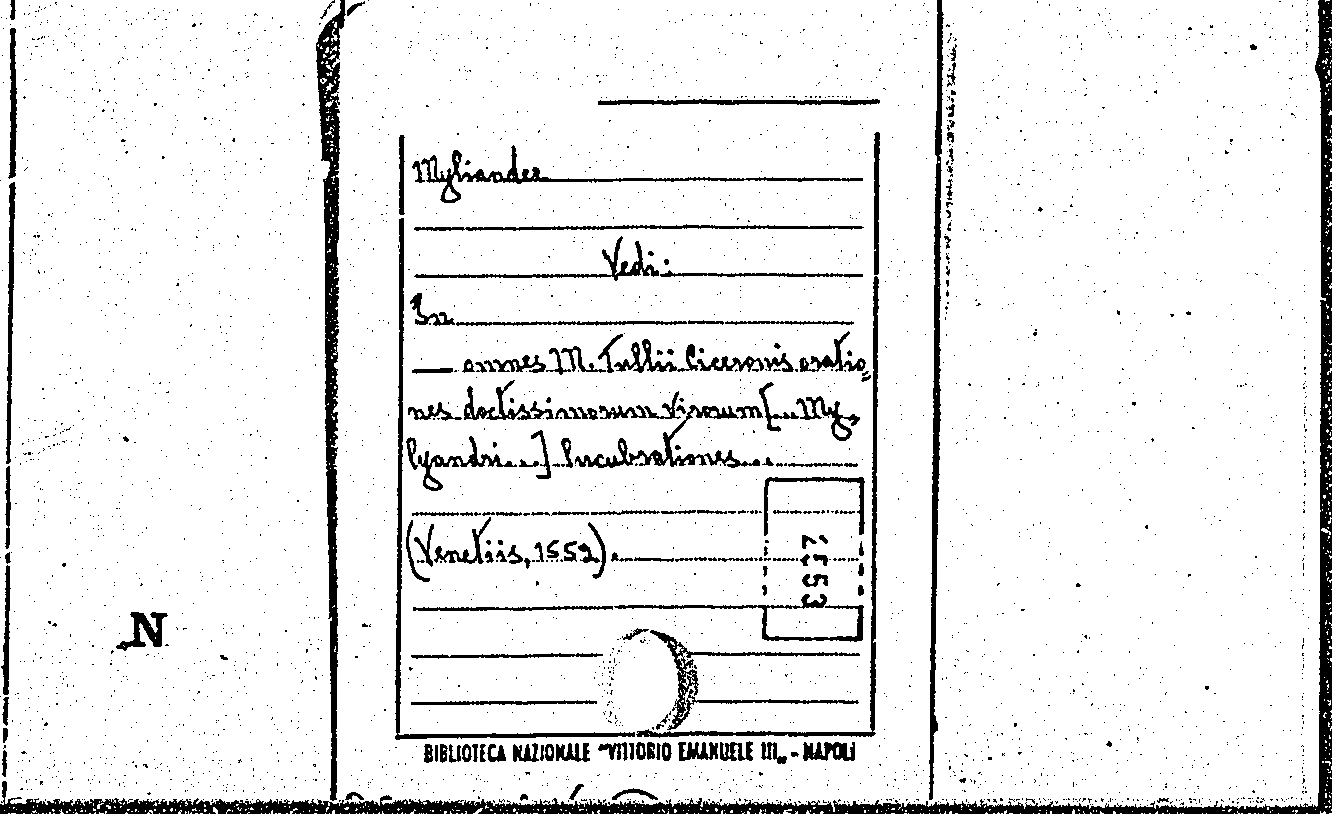 Myliander
Vedi:
In
— omnes M. Tullii Ciceronis oratio=
nes doctissimorum virorum [... My=
lyandri...] lucubrationes...
(Venetiis, 1552).
N
BIBLIOTECA NAZIONALE "VITTORIO EMANUELE III„ - NAPOLI